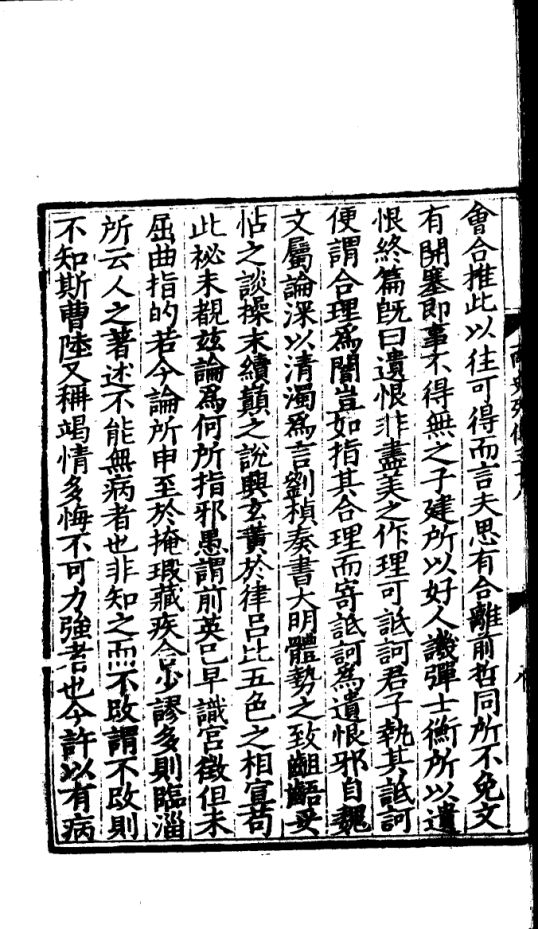 會合推此以往可得而言夫思有合離前哲同所不免文
有開塞即事不得無之子建所以好人譏彈士衡所以遺
恨終篇旣曰遺恨非盡美之作理可詆訶君子執其詆訶
便謂合理爲闇豈如指其合理而寄詆訶爲遺恨邪自魏
文屬論深以清濁爲言劉楨奏書大明體勢之致齟齬妥
怗之談操末續顚之說興玄黃於律呂比五色之相宣苟
此秘未覩茲論爲何所指邪愚謂前英已早識宮徵但未
屈曲指的若今論所申至於掩瑕藏疾合少謬多則臨淄
所云人之著述不能無病者也非知之而不改謂不改則
不知斯曹陸又稱竭情多悔不可力強者也今許以有病